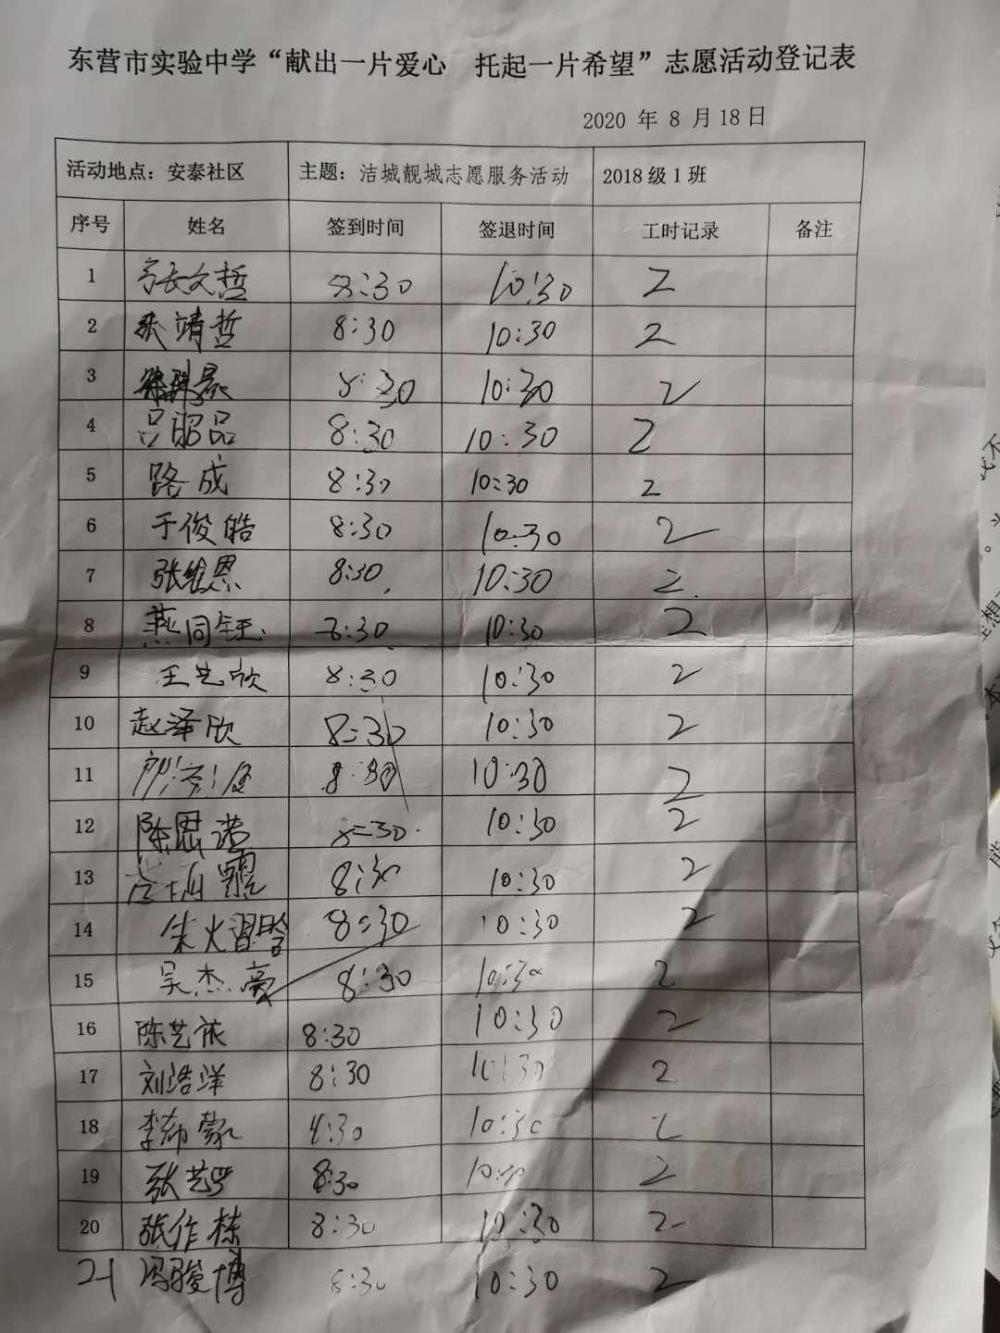 东营市实验中学“献出一片爱心 托起一片希望”志愿活动登记表
2020 年 8 月 18 日
活动地点：安泰社区 主题：洁城靓城志愿服务活动 2018 级 1 班
序号 姓名 签到时间 签退时间 工时记录 备注
1 张文哲 8:30 10:30 2
2 张靖哲 8:30 10:30 2
3 8:30 10:30 2
4 吕昭品 8:30 10:30 2
5 路成 8:30 10:30 2
6 于俊皓 8:30 10:30 2
7 张维恩 8:30 10:30 2
8 燕同钰 8:30 10:30 2
9 王艺欣 8:30 10:30 2
10 赵泽欣 8:30 10:30 2
11 8:30 10:30 2
12 陈思诺 8:30 10:30 2
13 8:30 10:30 2
14 朱 8:30 10:30 2
15 吴杰豪 8:30 10:30 2
16 陈艺依 8:30 10:30 2
17 刘浩洋 8:30 10:30 2
18 李沛蒙 8:30 10:30 2
19 张艺 8:30 10:30 2
20 张作栋 8:30 10:30 2
21 冯骏博 8:30 10:30 2